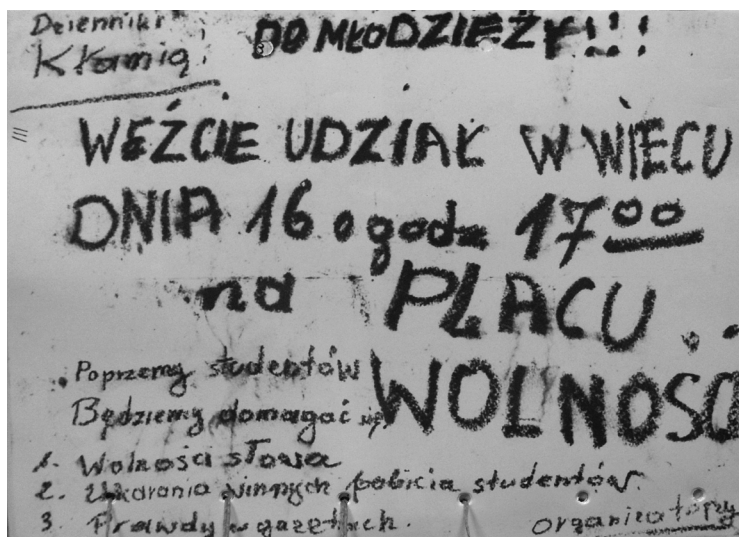 Dzienniki
Kłamią!
DO MŁODZIEŻY!!!
WEŹCIE UDZIAŁ W WIECU
DNIA 16 o godz. 17⁰⁰
na PLACU
WOLNOSCI
Poprzemy studentów
Będziemy domagać się
1. Wolności słowa
2. Ukarania winnych pobicia studentów.
3. Prawdy w gazetach.
Organizatorzy